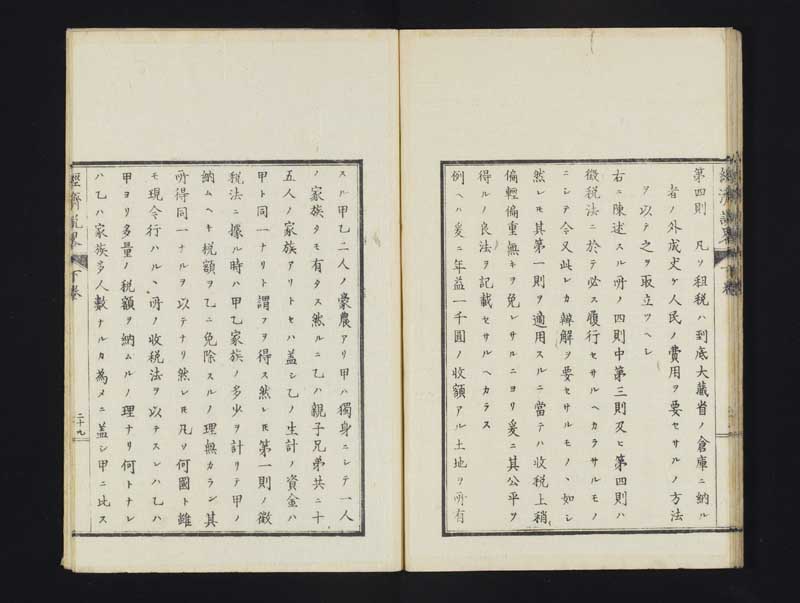 第四則 凡ソ租税ハ到底大蔵省ノ倉庫ニ納ル
者ノ外成丈ケ人民ノ費用ヲ要セサルノ方法
ヲ以テ之ヲ取立ツヘシ
右ニ陳述スル所ノ四則中第三則及ヒ第四則ハ
徴税法ニ於テ必ス履行セサルヘカラサルモノ
ニシテ今又此レカ辨解ヲ要セサルモノヽ如シ
然レ𪜈其第一則ヲ適用スルニ當テハ收税上稍
偏輕偏重無キヲ免レサルニヨリ爰ニ其公平ヲ
得ルノ良法ヲ記載セサルヘカラス
例ヘハ爰ニ年益一千圓ノ收額アル土地ヲ所有
スル甲乙二人ノ豪農アリ甲ハ獨身ニシテ一人
ノ家族タモ有タス然ルニ乙ハ親子兄弟共ニ十
五人ノ家族アリトセハ盖シ乙ノ生計ノ資金ハ
甲ト同一ナリト謂フヲ得ス然レ𪜈第一則ノ徴
税法ニ據ル時ハ甲乙家族ノ多少ヲ計リテ甲ノ
納ムヘキ税額ヲ乙ニ免除スルノ理無カラン其
所得同一ナルヲ以テナリ然レ𪜈凡ソ何國ト雖
モ現今行ハルヽ所ノ收税法ヲ以テスレハ乙ハ
甲ヨリ多量ノ税額ヲ納ムルノ理ナリ何トナレ
ハ乙ハ家族多人數ナルカ為メニ盖シ甲ニ比ス
經濟説畧 下巻
二十九